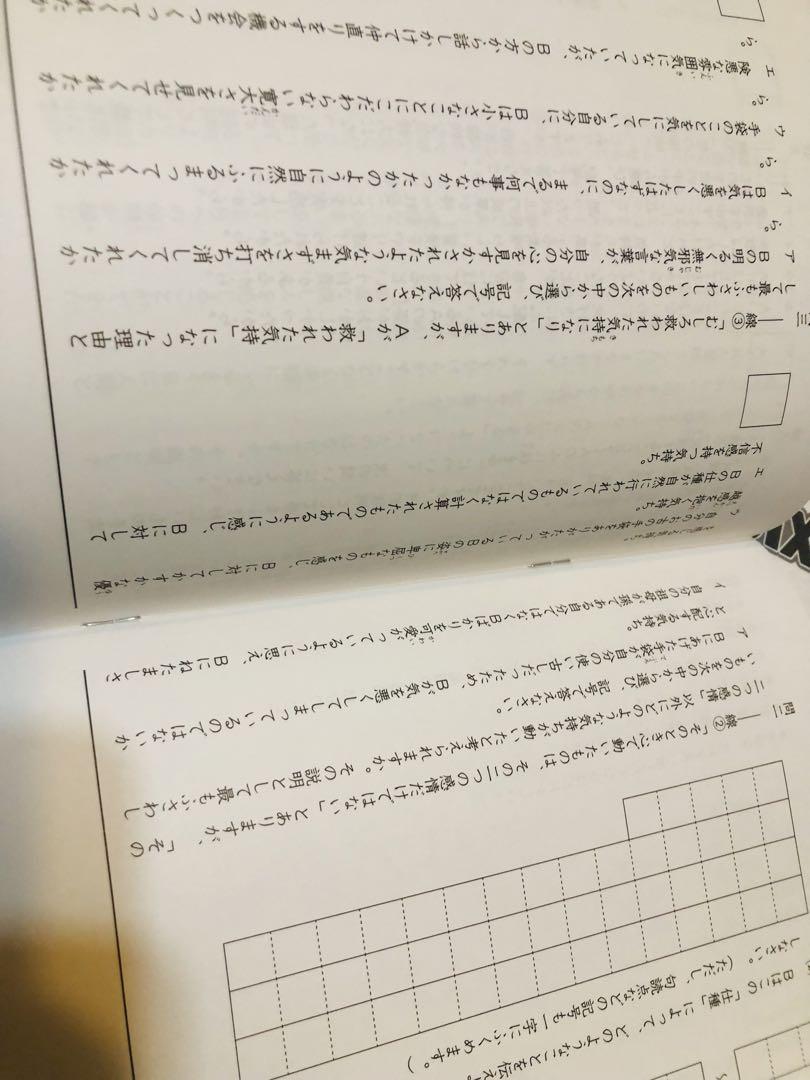 Bはこの「仕種」によって、どのようなことを伝え
しなさい。(ただし、句読点などの記号も一字にふくめます。)
問二 ──線②「そのとき心で動いたものは、その二つの感情だけではない」とありますが、「その
二つの感情」以外にどのような気持ちが動いたと考えられますか。その説明として最もふさわし
いものを次の中から選び、記号で答えなさい。
ア Bにあげた手袋が自分の使い古しだったため、Bが気を悪くしてしまっているのではないか
と心配する気持ち。
イ 自分の祖母が孫である自分ではなくBばかりを可愛がっているように思え、Bにねたましさ
を感じる気持ち。
ウ 自分のお古の手袋をありがたがっているBの姿に卑屈なものを感じ、Bに対してかすかな優
越感を抱く気持ち。
エ Bの仕種が自然に行われているものではなく計算されたものであるように感じ、Bに対して
不信感を持つ気持ち。
三 ──線③「むしろ救われた気持になり」とありますが、Aが「救われた気持」になった理由と
して最もふさわしいものを次の中から選び、記号で答えなさい。
ア Bの明るく無邪気な言葉が、自分の心を見すかされたような気まずさを打ち消してくれたか
ら。
イ Bは気を悪くしたはずなのに、まるで何事もなかったかのように自然にふるまってくれたか
ら。
ウ 手袋のことを気にしている自分に、Bは小さなことにこだわらない寛大さを見せてくれたか
ら。
エ 険悪な雰囲気になっていたが、Bの方から話しかけて仲直りをする機会をつくってくれたか
ら。